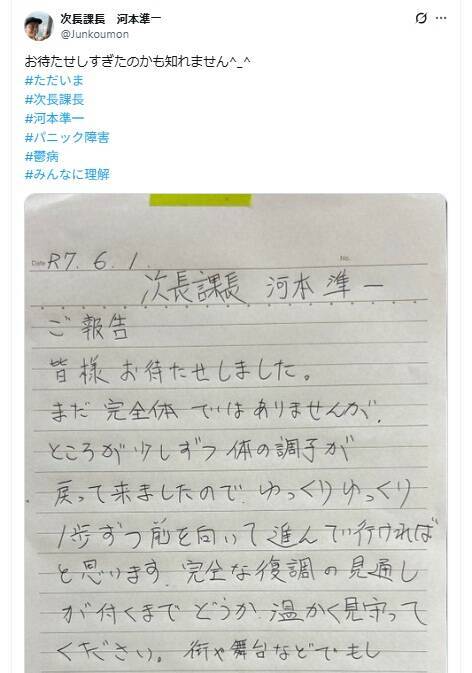 次長課長 河本準一
@Junkoumon
お待たせしすぎたのかも知れません^_^
#ただいま
#次長課長
#河本準一
#パニック障害
#鬱病
#みんなに理解
Date R7.6.1. No.
次長課長 河本準一
ご報告
皆様お待たせしました。
まだ完全体ではありませんが、
ところが少しずつ体の調子が
戻って来ましたので、ゆっくりゆっくり
1歩ずつ前を向いて進んで行ければ
と思います。完全な復調の見通し
が付くまでどうか温かく見守って
ください。街や舞台などでもし